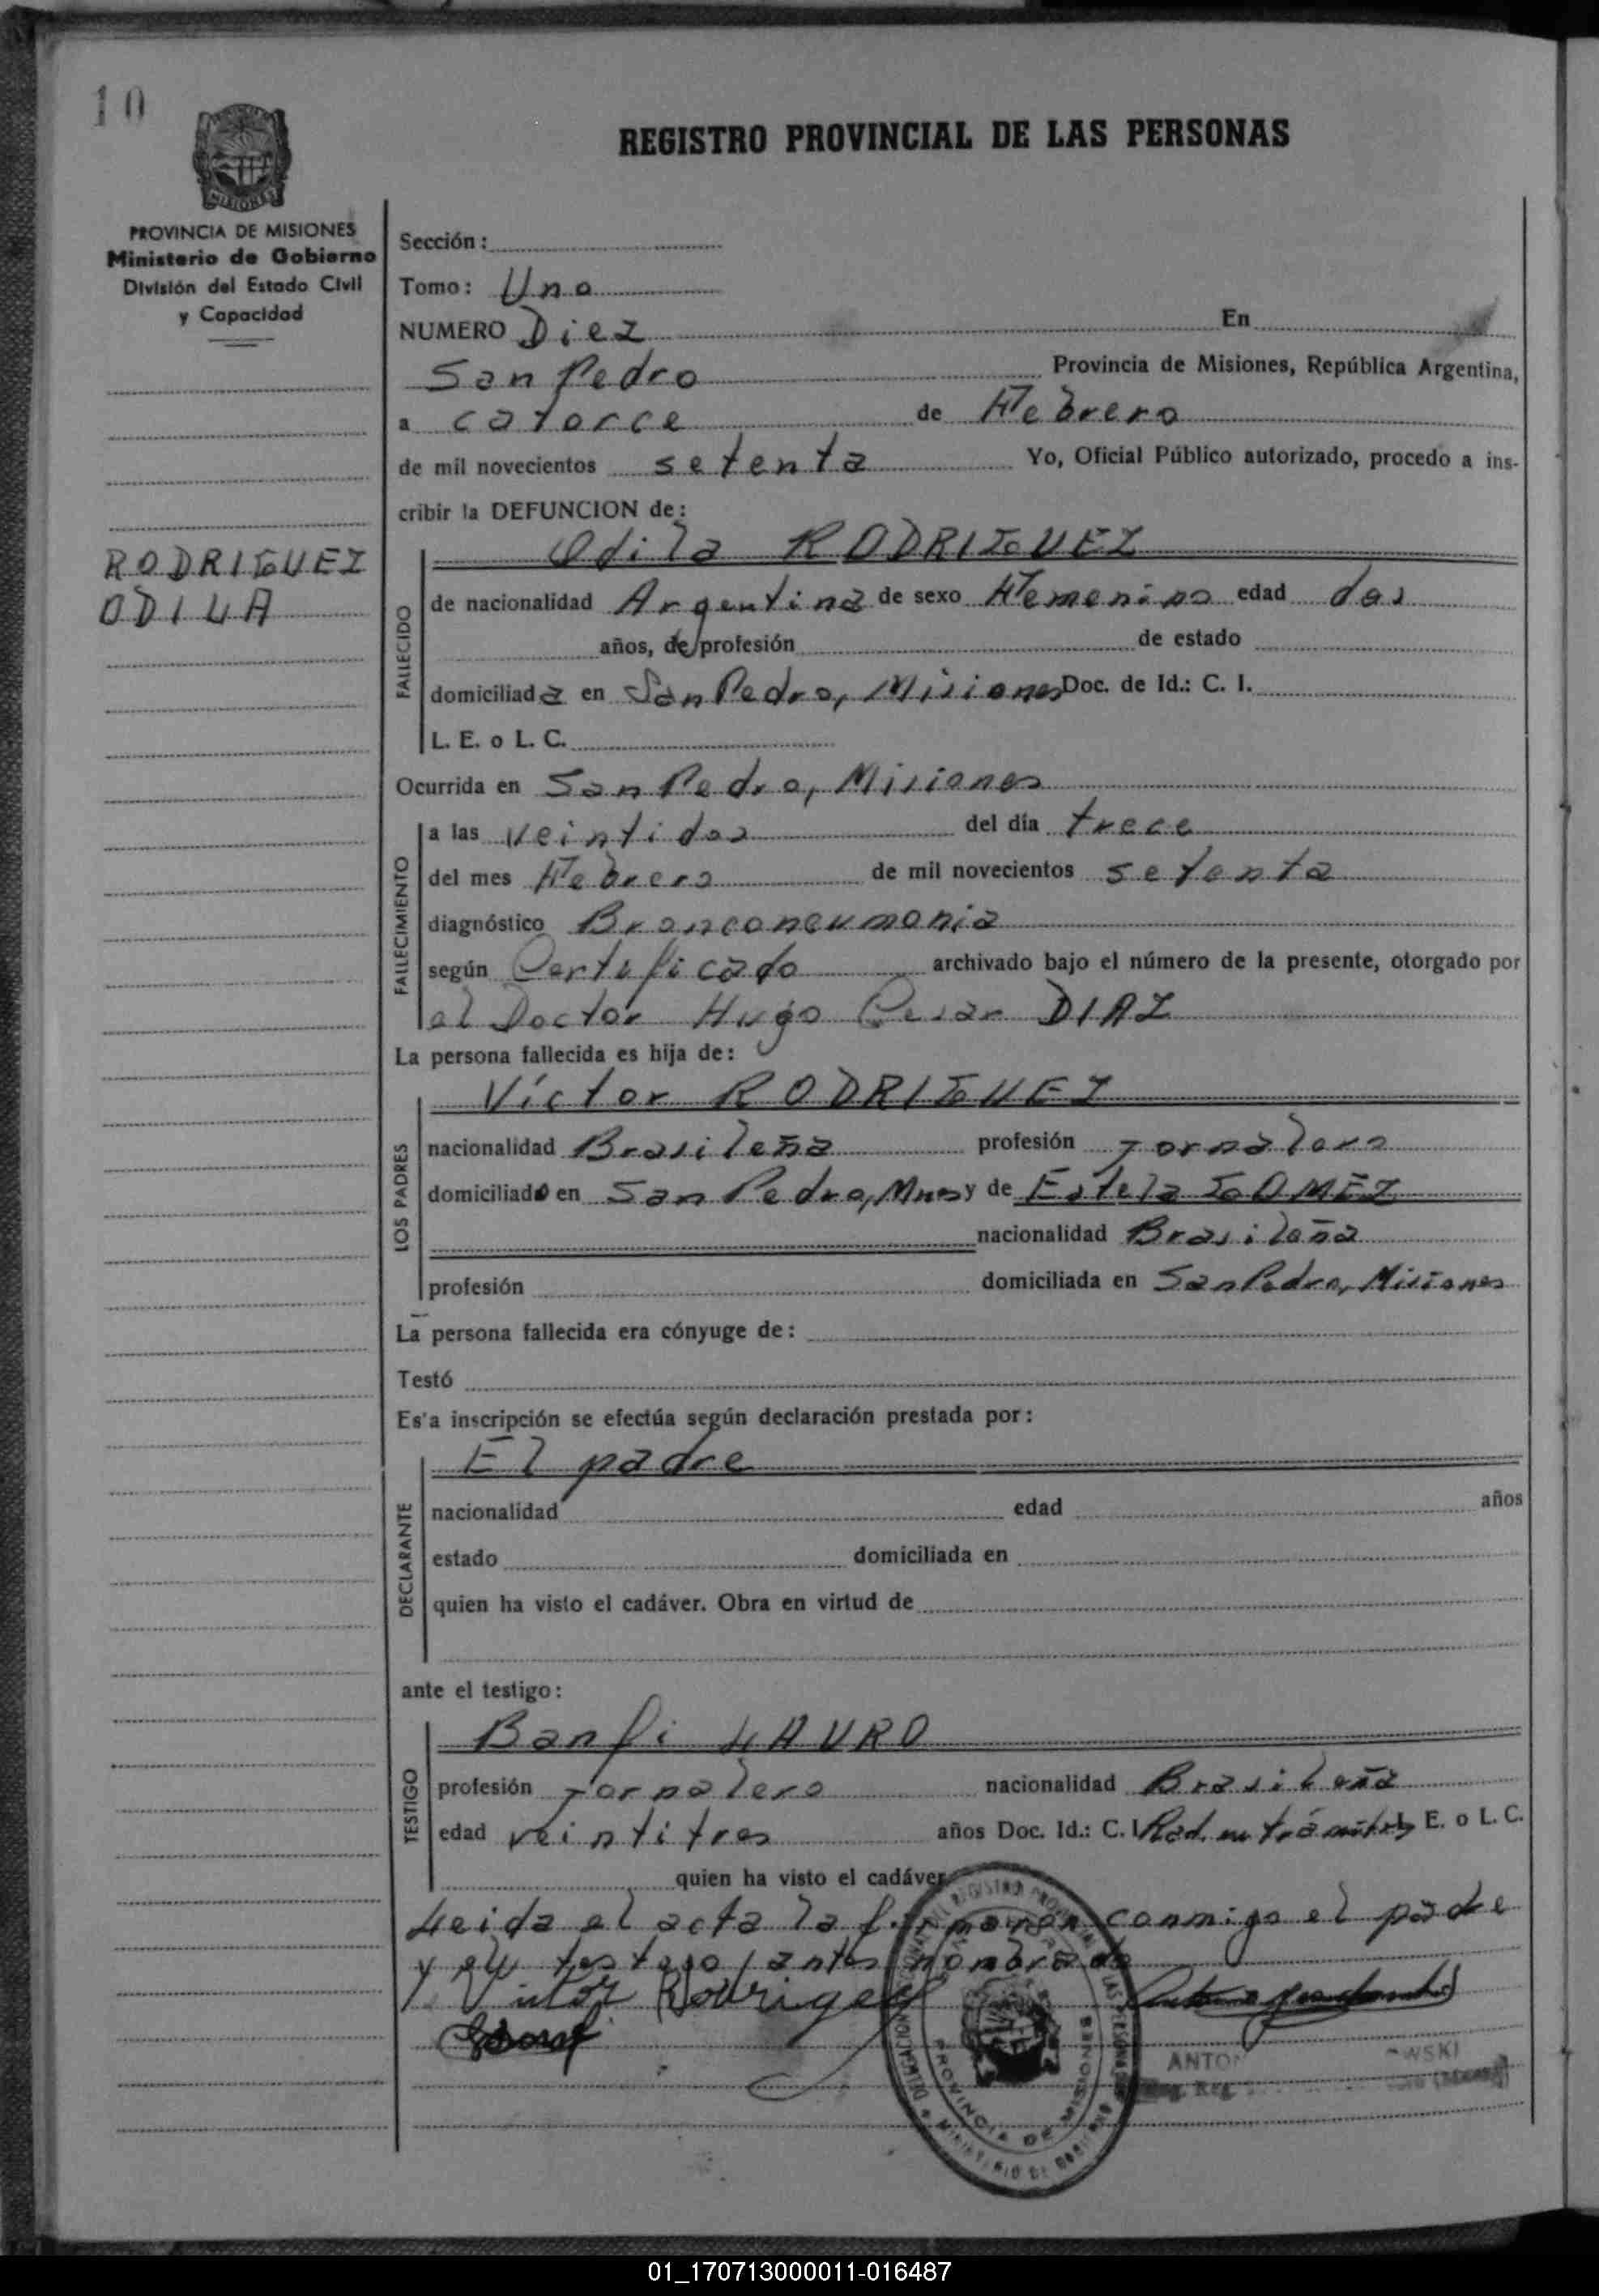 10
REGISTRO PROVINCIAL DE LAS PERSONAS
MISIONES
PROVINCIA DE MISIONES
Ministerio de Gobierno
División del Estado Civil
y Capacidad
RODRIGUEZ
ODILA
Sección:
Tomo: Uno
NUMERO Diez En
San Pedro Provincia de Misiones, República Argentina,
a catorce de Febrero
de mil novecientos setenta Yo, Oficial Público autorizado, procedo a ins-
cribir la DEFUNCION de:
Odila RODRIGUEZ
FALLECIDO
de nacionalidad Argentina de sexo Femenino edad dos
años, de profesión de estado
domiciliada en San Pedro, Misiones Doc. de Id.: C. I.
L. E. o L. C.
Ocurrida en San Pedro, Misiones
FALLECIMIENTO
a las veintidos del día trece
del mes Febrero de mil novecientos setenta
diagnóstico Bronconeumonia
según Certificado archivado bajo el número de la presente, otorgado por
el Doctor Hugo Cesar DIAZ
La persona fallecida es hija de:
Víctor RODRIGUEZ
LOS PADRES
nacionalidad Brasileña profesión Jornalero
domiciliado en San Pedro, Mnes y de Estela GOMEZ
nacionalidad Brasileña
profesión domiciliada en San Pedro, Misiones
La persona fallecida era cónyuge de:
Testó
Es'a inscripción se efectúa según declaración prestada por:
El padre
DECLARANTE
nacionalidad edad años
estado domiciliada en
quien ha visto el cadáver. Obra en virtud de
ante el testigo:
Banfi LAURO
TESTIGO
profesión Jornalero nacionalidad Brasileña
edad veintitres años Doc. Id.: C. I. Rad. en trámites L. E. o L. C.
quien ha visto el cadáver
Leida el acta la firmaron conmigo el padre
y el testigo antes nombrado
Victor Rodriguez
PROVINCIA DE MISIONES
ANTO WSKI
01_170713000011-016487